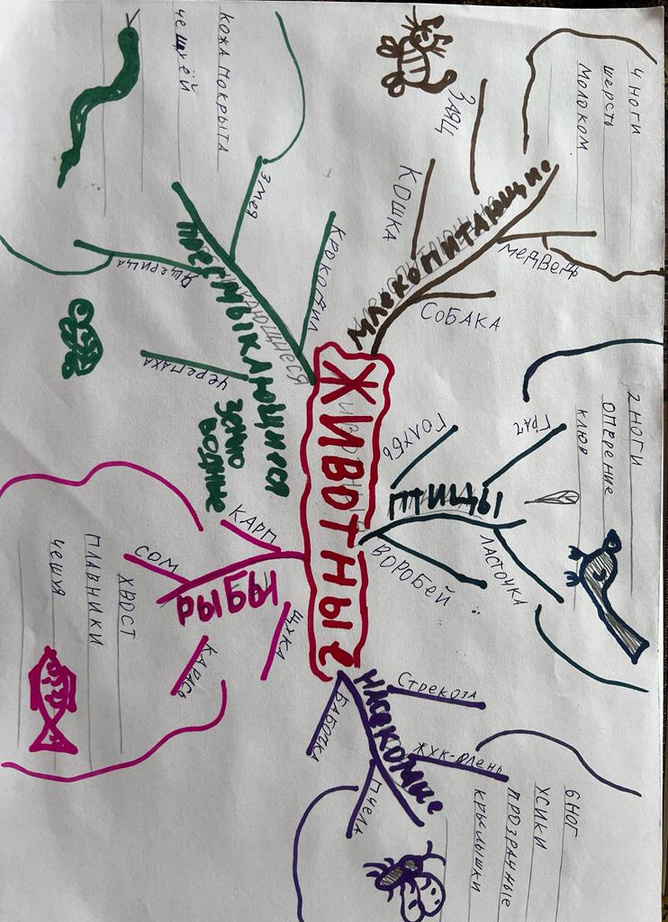 ЖИВОТНЫЕ
МЛЕКОПИТАЮЩИЕ
ЗАЯЦ
КОШКА
МЕДВЕДЬ
СОБАКА
4 НОГИ
ШЕРСТЬ
МОЛОКОМ
ПТИЦЫ
ГОЛУБЬ
ГРАЧ
ЛАСТОЧКА
ВОРОБЕЙ
2 НОГИ
ОПЕРЕНИЕ
КЛЮВ
НАСЕКОМЫЕ
СТРЕКОЗА
ЖУК-ОЛЕНЬ
ПЧЕЛА
БАБОЧКА
6 НОГ
УСИКИ
ПРОЗРАЧНЫЕ
КРЫЛЫШКИ
РЫБЫ
КАРП
СОМ
ЩУКА
КАРАСЬ
ХВОСТ
ПЛАВНИКИ
ЧЕШУЯ
ПРЕСМЫКАЮЩИЕСЯ
ВОДНЫЕ
КРОКОДИЛ
ЗМЕЯ
ЯЩЕРИЦА
ЧЕРЕПАХА
КОЖА ПОКРЫТА
ЧЕШУЁЙ